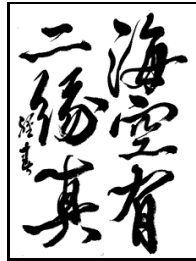 海空有
二緣真